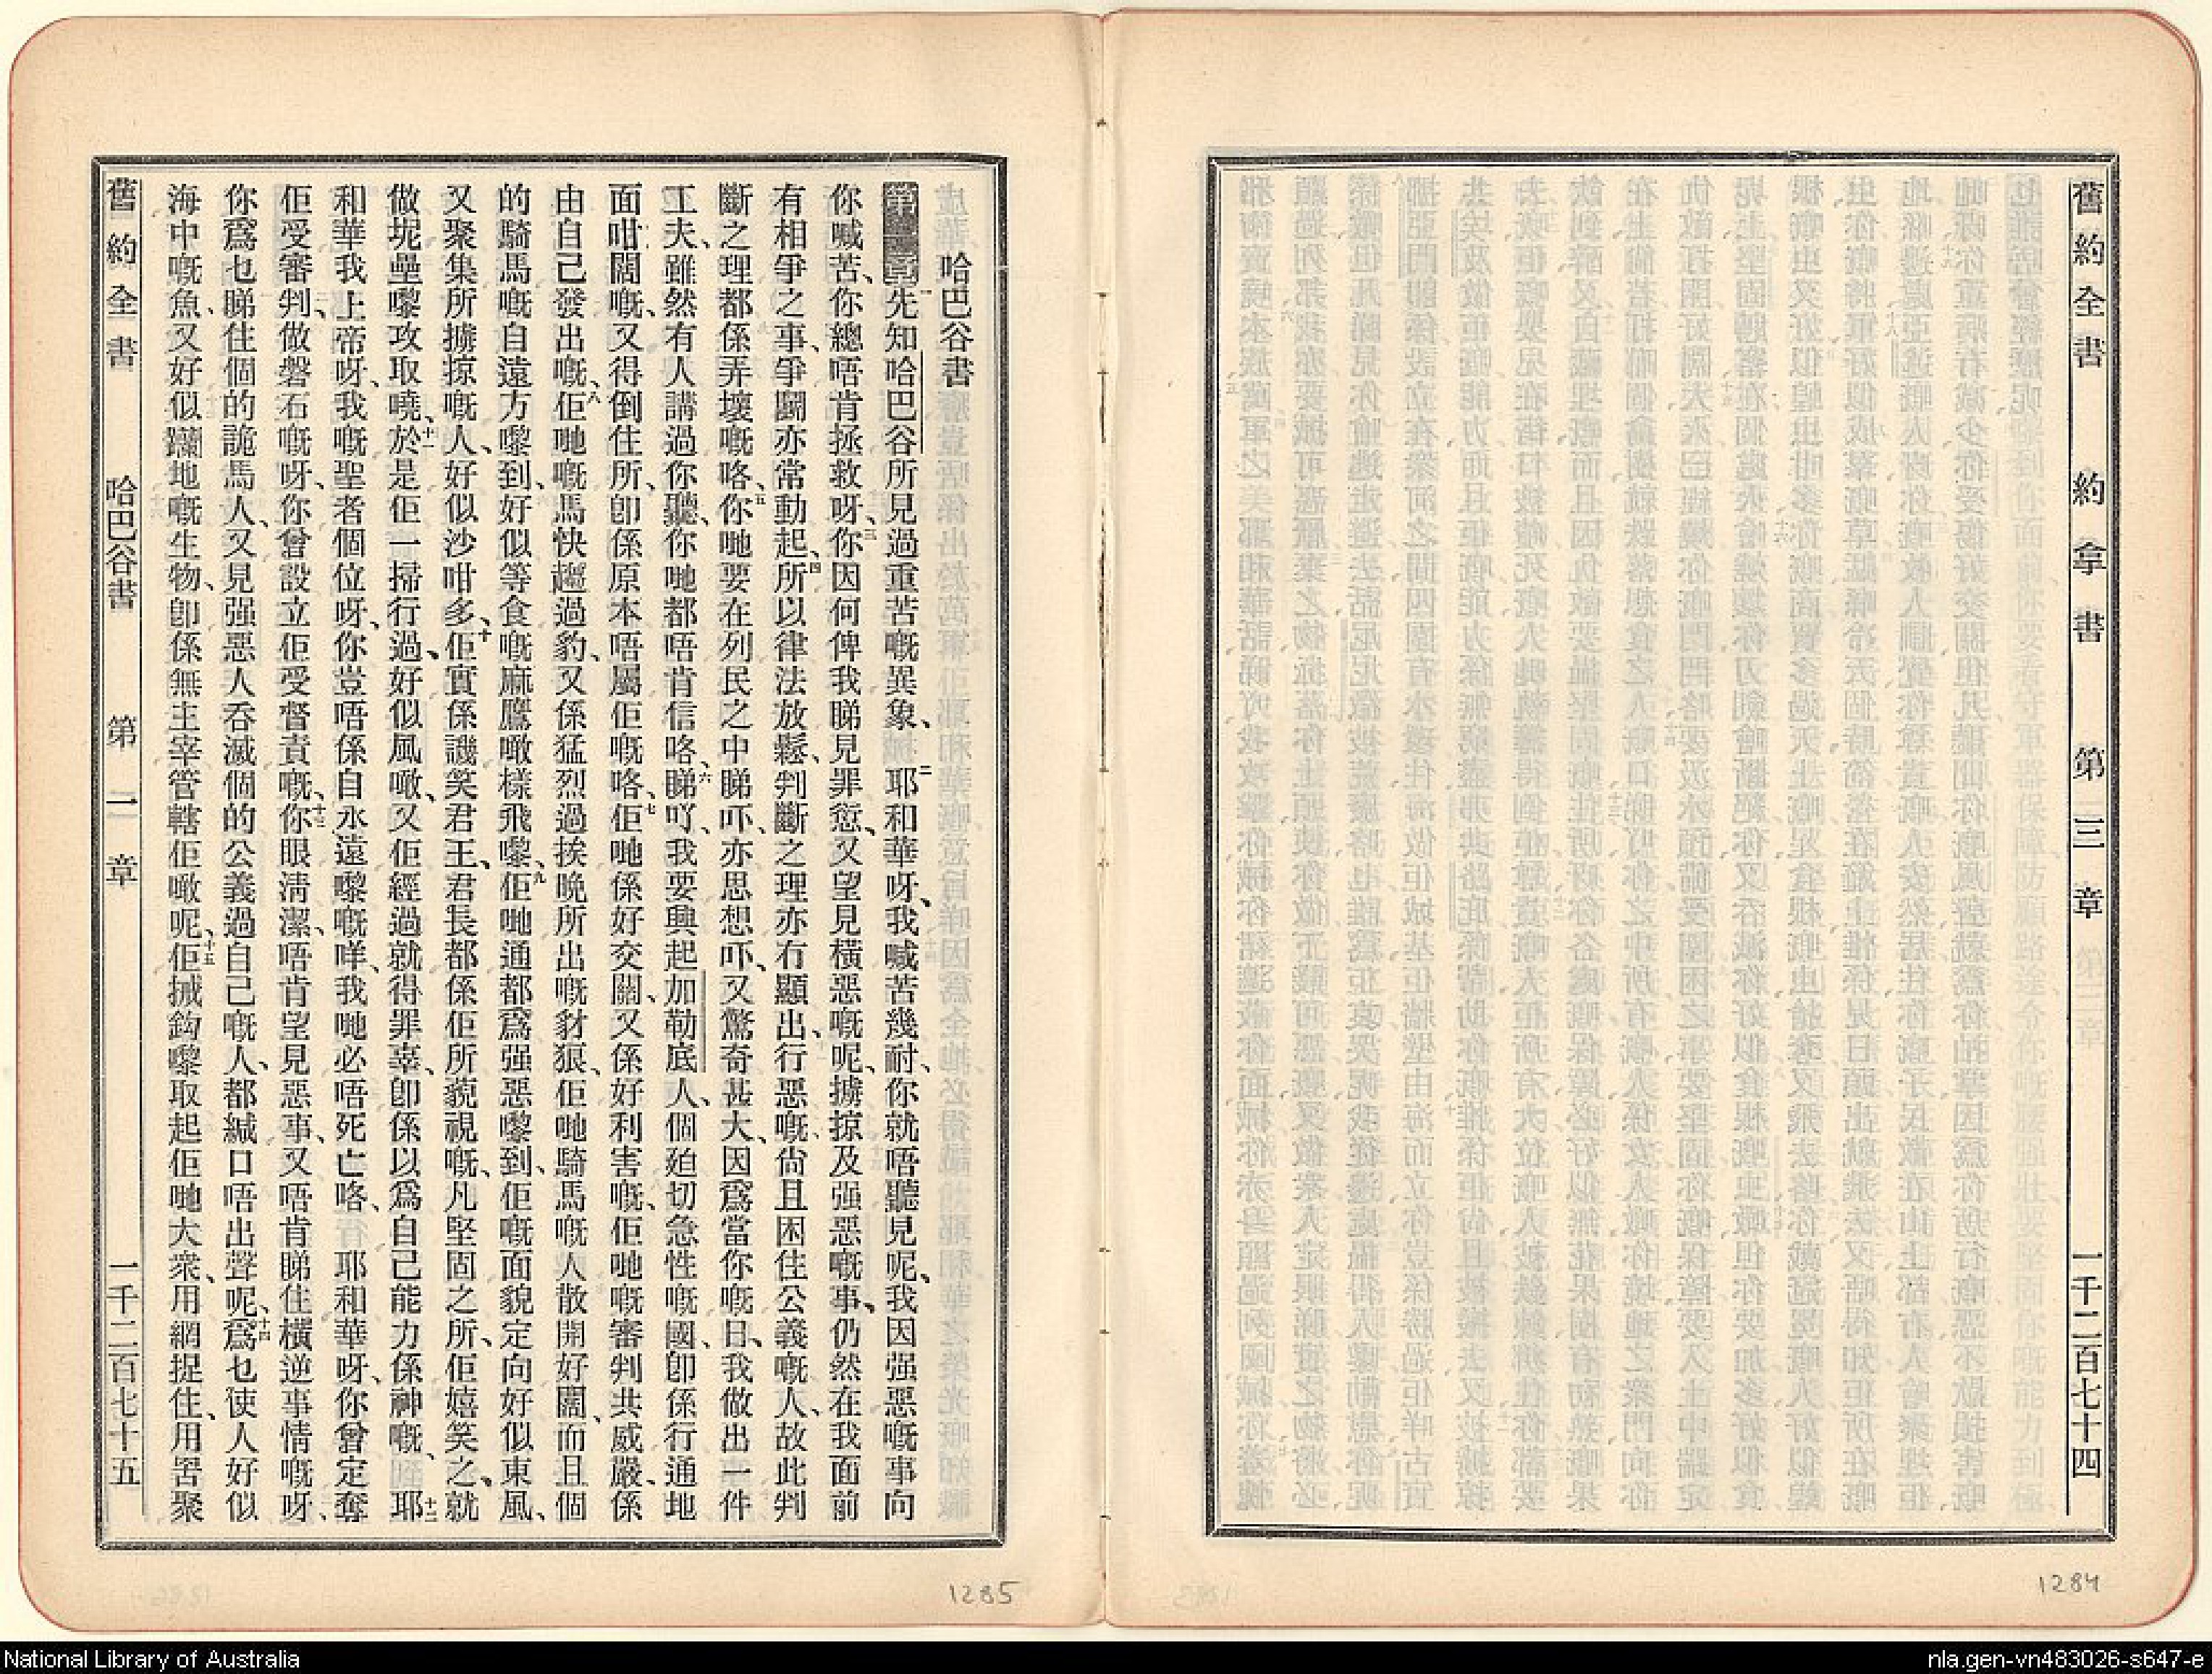 舊約全書 約拿書 第三章 一千二百七十四
1284
哈巴谷書
第一章 一先知哈巴谷所見過重苦嘅異象、二耶和華呀、我喊苦幾耐、你就唔聽見呢、我因强惡嘅事向
你喊苦、你總唔肯拯救呀、三你因何俾我睇見罪愆、又望見橫惡嘅呢、擄掠及强惡嘅事、仍然在我面前
有相爭之事、爭鬭亦常動起、四所以律法放鬆、判斷之理亦冇顯出、行惡嘅、尙且困住公義嘅人、故此判
斷之理都係弄壞嘅咯、五你哋要在列民之中睇吓、亦思想吓、又驚奇甚大、因爲當你嘅日、我做出一件
工夫、雖然有人講過你聽、你哋都唔肯信咯、六睇吖、我要興起加勒底人、個兇切急性嘅國、卽係行通地
面咁闊嘅、又得倒住所、卽係原本唔屬佢嘅咯、七佢哋係好交關、又係好利害嘅、佢哋嘅審判共威嚴、係
由自己發出嘅、八佢哋嘅馬快趯過豹、又係猛烈過挨晚所出嘅豺狼、佢哋騎馬嘅人散開好闊、而且個
的騎馬嘅、自遠方嚟到、好似等食嘅麻鷹噉樣飛嚟、九佢哋通都爲强惡嚟到、佢嘅面貌定向好似東風、
又聚集所擄掠嘅人、好似沙咁多、十佢實係譏笑君王、君長都係佢所藐視嘅、凡堅固之所、佢嬉笑之、就
做坭壘嚟攻取曉、十一於是佢一掃行過、好似風噉、又佢經過就得罪辜、卽係以爲自己能力係神嘅、十二耶
和華我上帝呀、我嘅聖者個位呀、你豈唔係自永遠嚟嘅咩、我哋必唔死亡咯、耶和華呀、你曾定奪
佢受審判、做磐石嘅呀、你曾設立佢受督責嘅、十三你眼清潔、唔肯望見惡事、又唔肯睇住橫逆事情嘅呀、
你爲乜睇住個的詭馬人、又見强惡人呑滅個的公義過自己嘅人、都緘口唔出聲呢、十四爲乜使人好似
海中嘅魚、又好似躝地嘅生物、卽係無主宰管轄佢噉呢、十五佢㨢鈎嚟取起佢哋大衆、用網捉住、用罟聚
舊約全書 哈巴谷書 第一章 一千二百七十五
1285
National Library of Australia
nla.gen-vn483026-s647-e